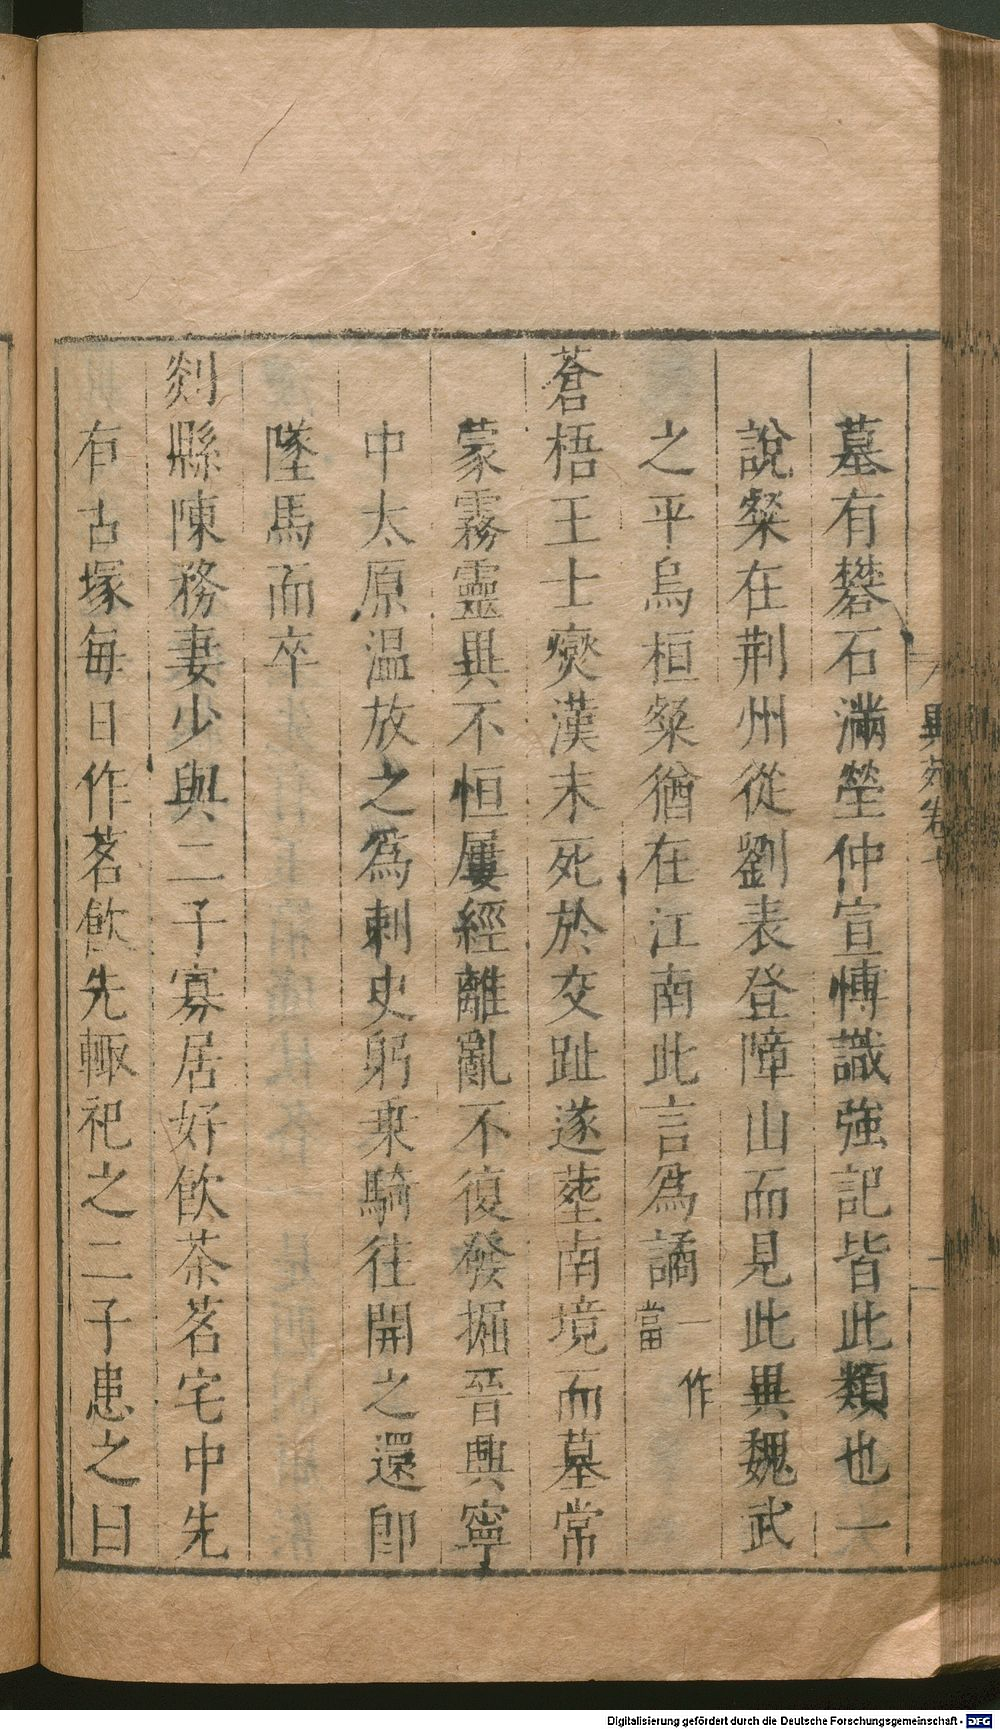 墓有礬石滿塋仲宣博識強記皆此類也一
說粲在荆州從劉表登障山而見此異魏武
之平烏桓粲猶在江南此言爲譎一作當
蒼梧王士燮漢末死於交趾遂塟南境而墓常
蒙霧靈異不恒屢經離亂不復發掘晉興寧
中太原温放之爲刺史躬乗騎往開之還卽
墜馬而卒
剡縣陳務妻少與二子寡居好飲茶茗宅中先
有古塚每日作茗飲先輙祀之二子患之曰
異苑卷七
Digitalisierung gefördert durch die Deutsche Forschungsgemeinschaft - DFG